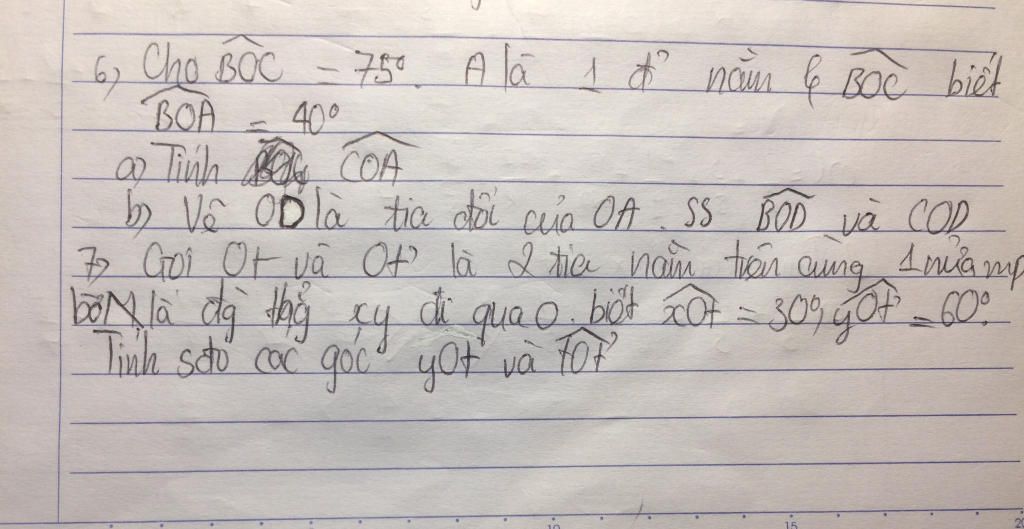 6, Cho BOC = 75°. A là 1 đ' nằm biết
BOA = 40°
a) Tính COA
b) Vẽ OD là tia đối của OA. SS BOD và COD
7, Gọi Ot và Ot' là 2 tia nằm trên cùng 1 nửa mp
bờ là đg thg xy đi qua O. biết xOt = 30°, yOt' = 60°.
Tính sđo các góc yOt và tOt'
10
15